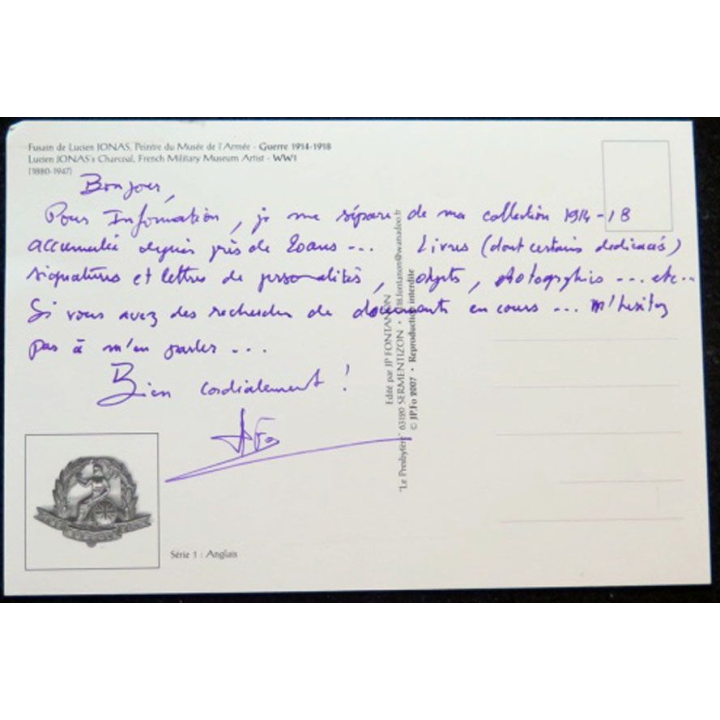 Fusain de Lucien JONAS, Peintre du Musée de l'Armée - Guerre 1914-1918
Lucien JONAS's Charcoal, French Military Museum Artist - WW1
(1880-1947)
Bonjour,
Pour Information, je me sépare de ma collection 1914-18
accumulée depuis près de 20 ans ... Livres (dont certains dédicacés)
signatures et lettres de personnalités, objets, photographies ... etc...
Si vous avez des recherches de documents en cours ... n'hésitez
pas à m'en parler ...
Bien cordialement !
Edité par JP FONTANON
"Le Presbytère" 63120 SERMENTIZON • fontanon@wanadoo.fr
© JP.Fo 2007 • Reproduction interdite
Série 1 : Anglais